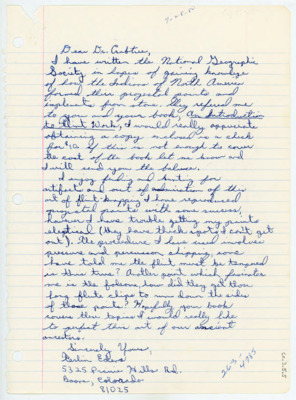 Dear Dr. Crabtree,
I have written the National Geographic
Society in hopes of gaining knowledge
of how the Indians of North America
formed their projectile points and
implements from stone. They referred me
to you and your book, An Introduction
to Flint Work, I would really appreciate
obtaining a copy. Enclosed is a check
for $10 if this is not enough to cover
the cost of the book let me know and
I will send you the balance.
I enjoy finding hunting for
artifacts and out of admiration of this
art of flint knapping I have reproduced
projectile points with some success,
however I have trouble getting my points
eliptical (they have thick spots I can't get
out). The procedure I have used involves
pressure and percussion chipping, some
have told me the flint must be tempered
is this true? Another point which fascinates
me is the folsom, how did they get those
long flute chips to run down the sides
of those points? Hopefully your book
covers these topics & I would really like
to perfect this art of our ancient
ancestors.
Sincerely Yours,
5325 Prairie Hills Rd.
Colorado
263-4985